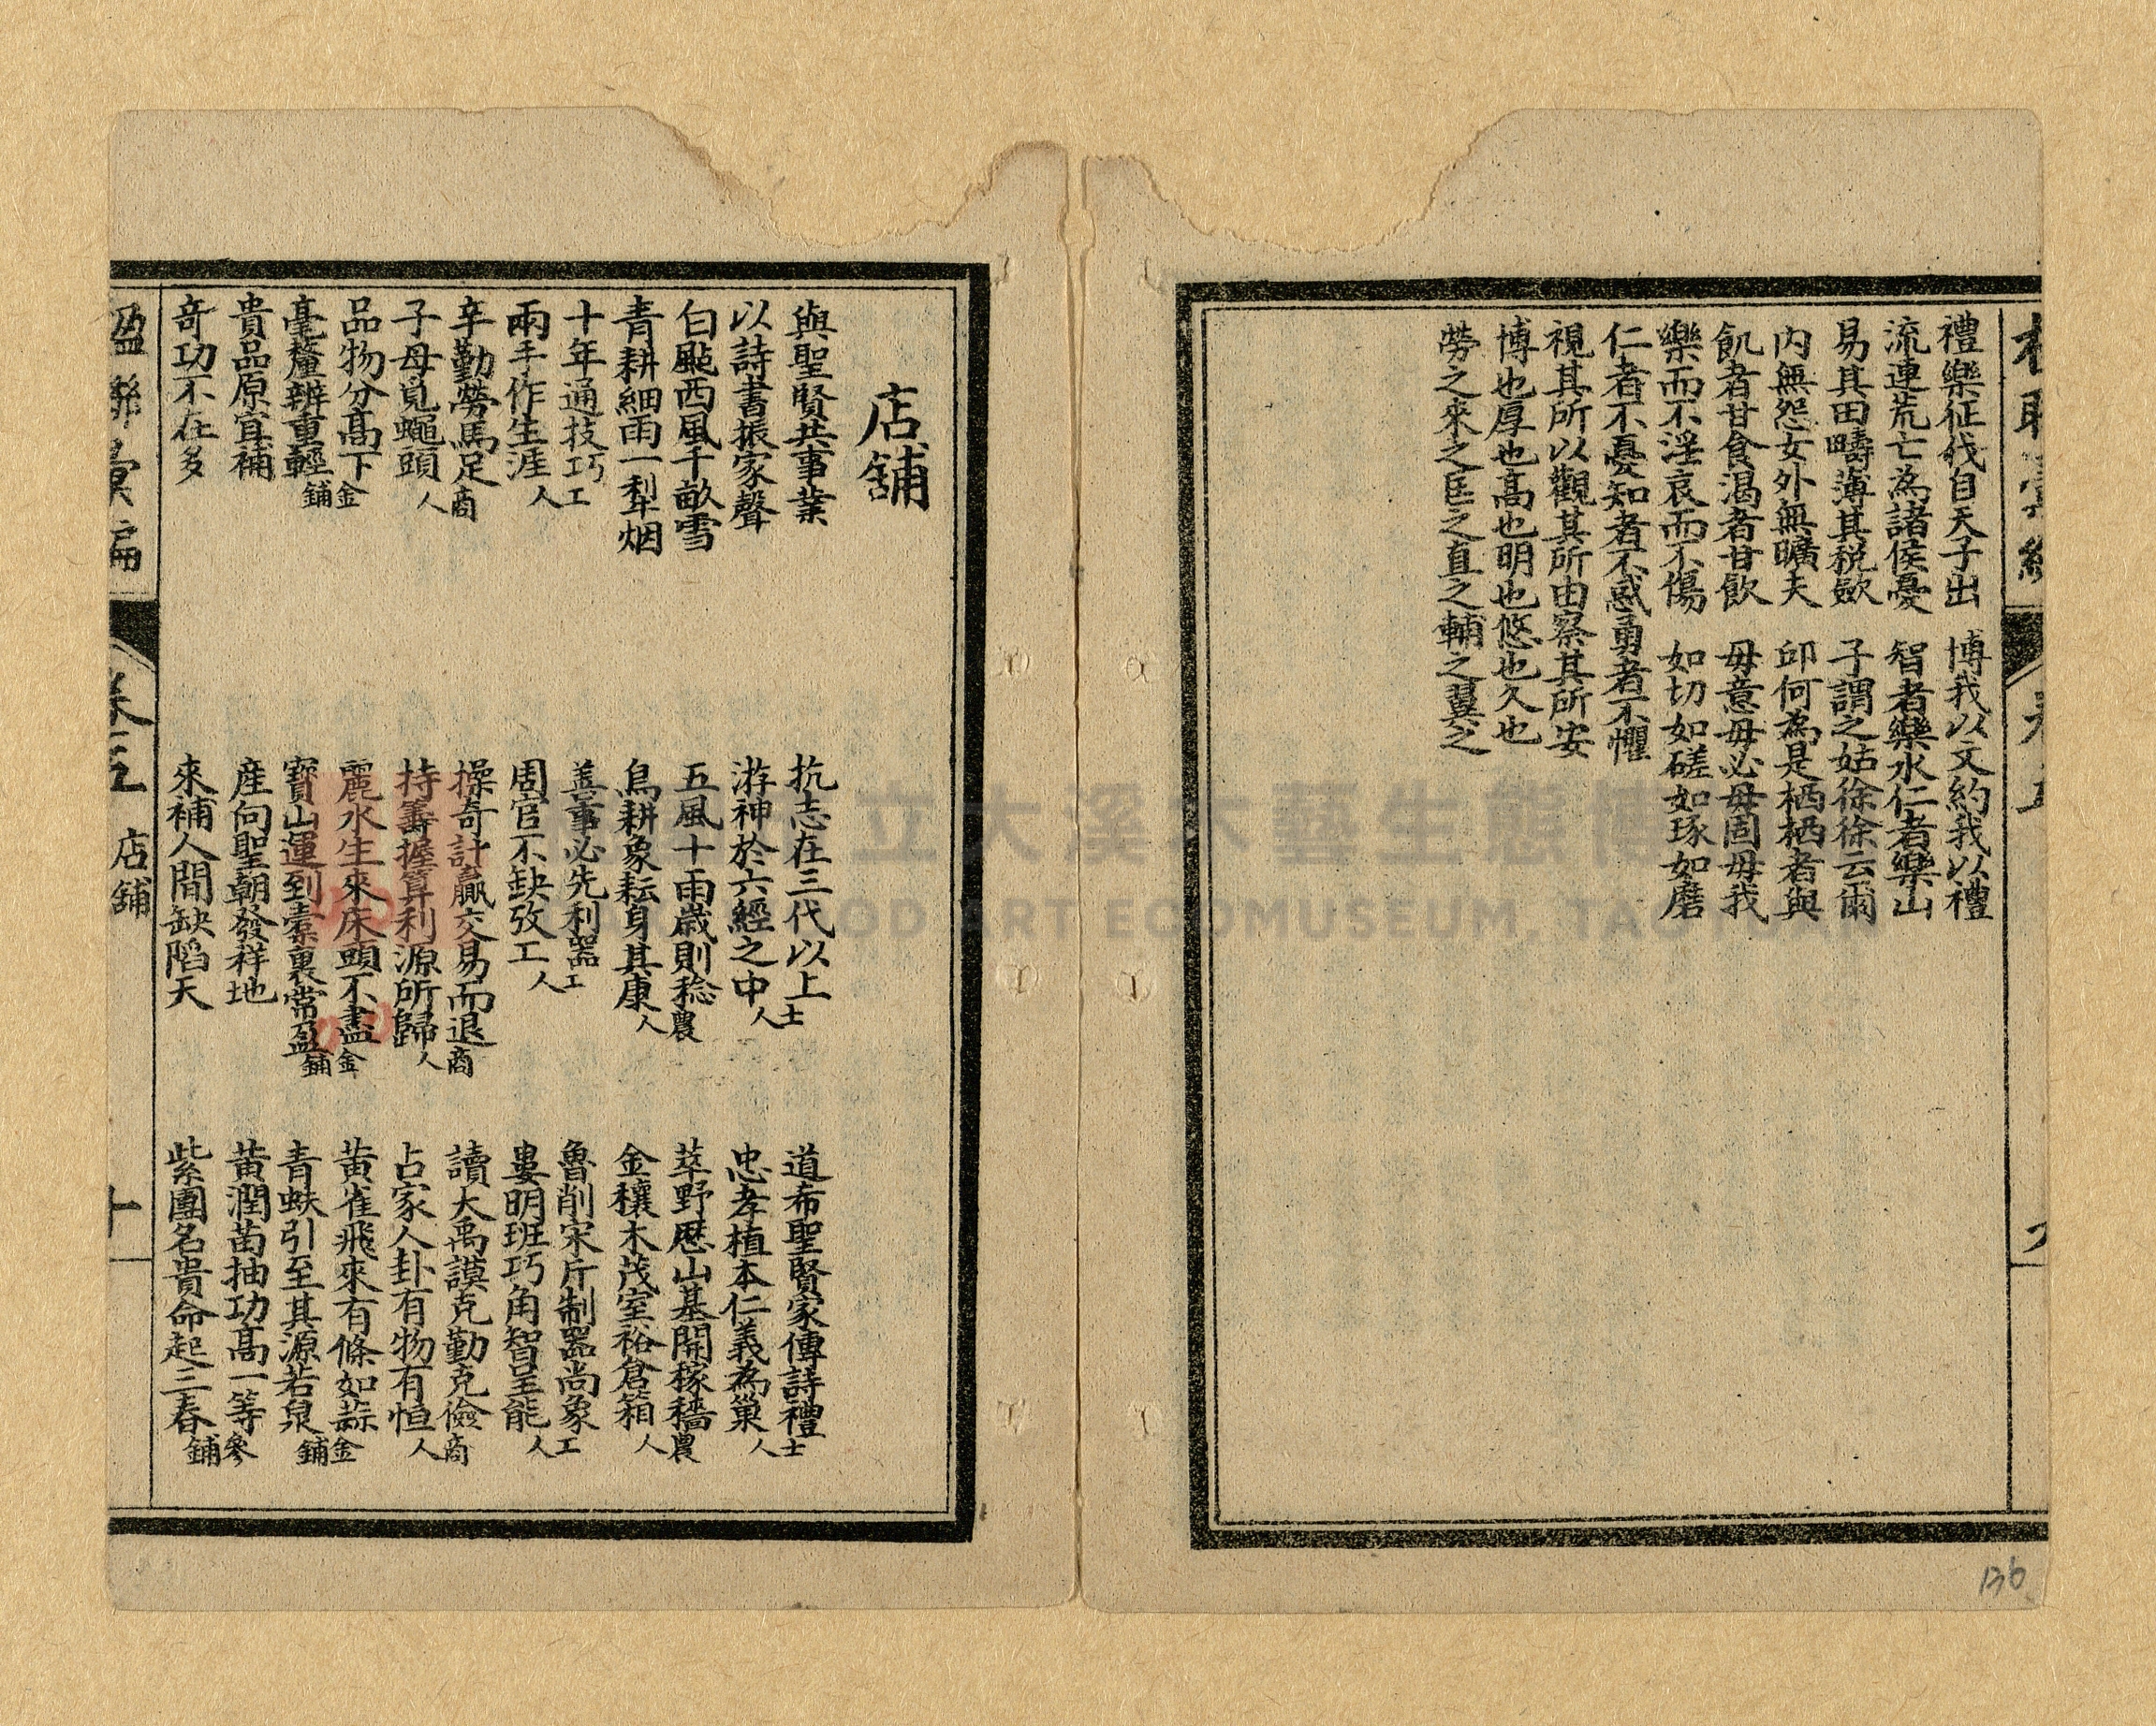 禮樂征伐自天子出　博我以文約我以禮
流連荒亡為諸侯憂　智者樂水仁者樂山
易其田疇薄其税斂　子謂之姑徐徐云爾
内無怨女外無曠夫　邱何為是栖栖者與
飢者甘食渴者甘飲　毋意毋必毋固毋我
樂而不淫哀而不傷　如切如磋如琢如磨
仁者不憂知者不惑勇者不懼
視其所以觀其所由察其所安
博也厚也高也明也悠也久也
勞之來之匡之直之輔之翼之
136
店舖
與聖賢共事業　抗志在三代以上士　道布聖賢家傳詩禮士
以詩書振家聲　游神於六經之中人　忠孝植本仁義為巢人
白颭西風千畝雪　五風十雨歲則稔農　莘野歷山基開稼穡農
青耕細雨一犁烟　鳥耕象耘身其康人　金穰木茂室裕倉箱人
十年通技巧工　善事必先利器工　魯削宋斤制器尚象工
兩手作生涯人　周官不缺攷工人　婁明班巧角智呈能人
辛勤勞馬足商　操奇計贏交易而退商　讀大禹謨克勤克儉商
子母覓蠅頭人　持籌握算利源所歸人　占家人卦有物有恒人
品物分高下金　麗水生來床頭不盡金　黃雀飛來有條如蒜金
毫釐辨重輕舖　寶山運到橐裏常盈舖　青蚨引至其源若泉舖
貴品原宜補　産向聖朝發祥地　黃潤苗抽功高一等參
奇功不在多　來補人間缺陷天　紫團名貴命起三春舖
楹聯彙編　卷五　店舖　十
立大溪木藝生態博
WOOD ART ECOMUSEUM, TAOYUAN